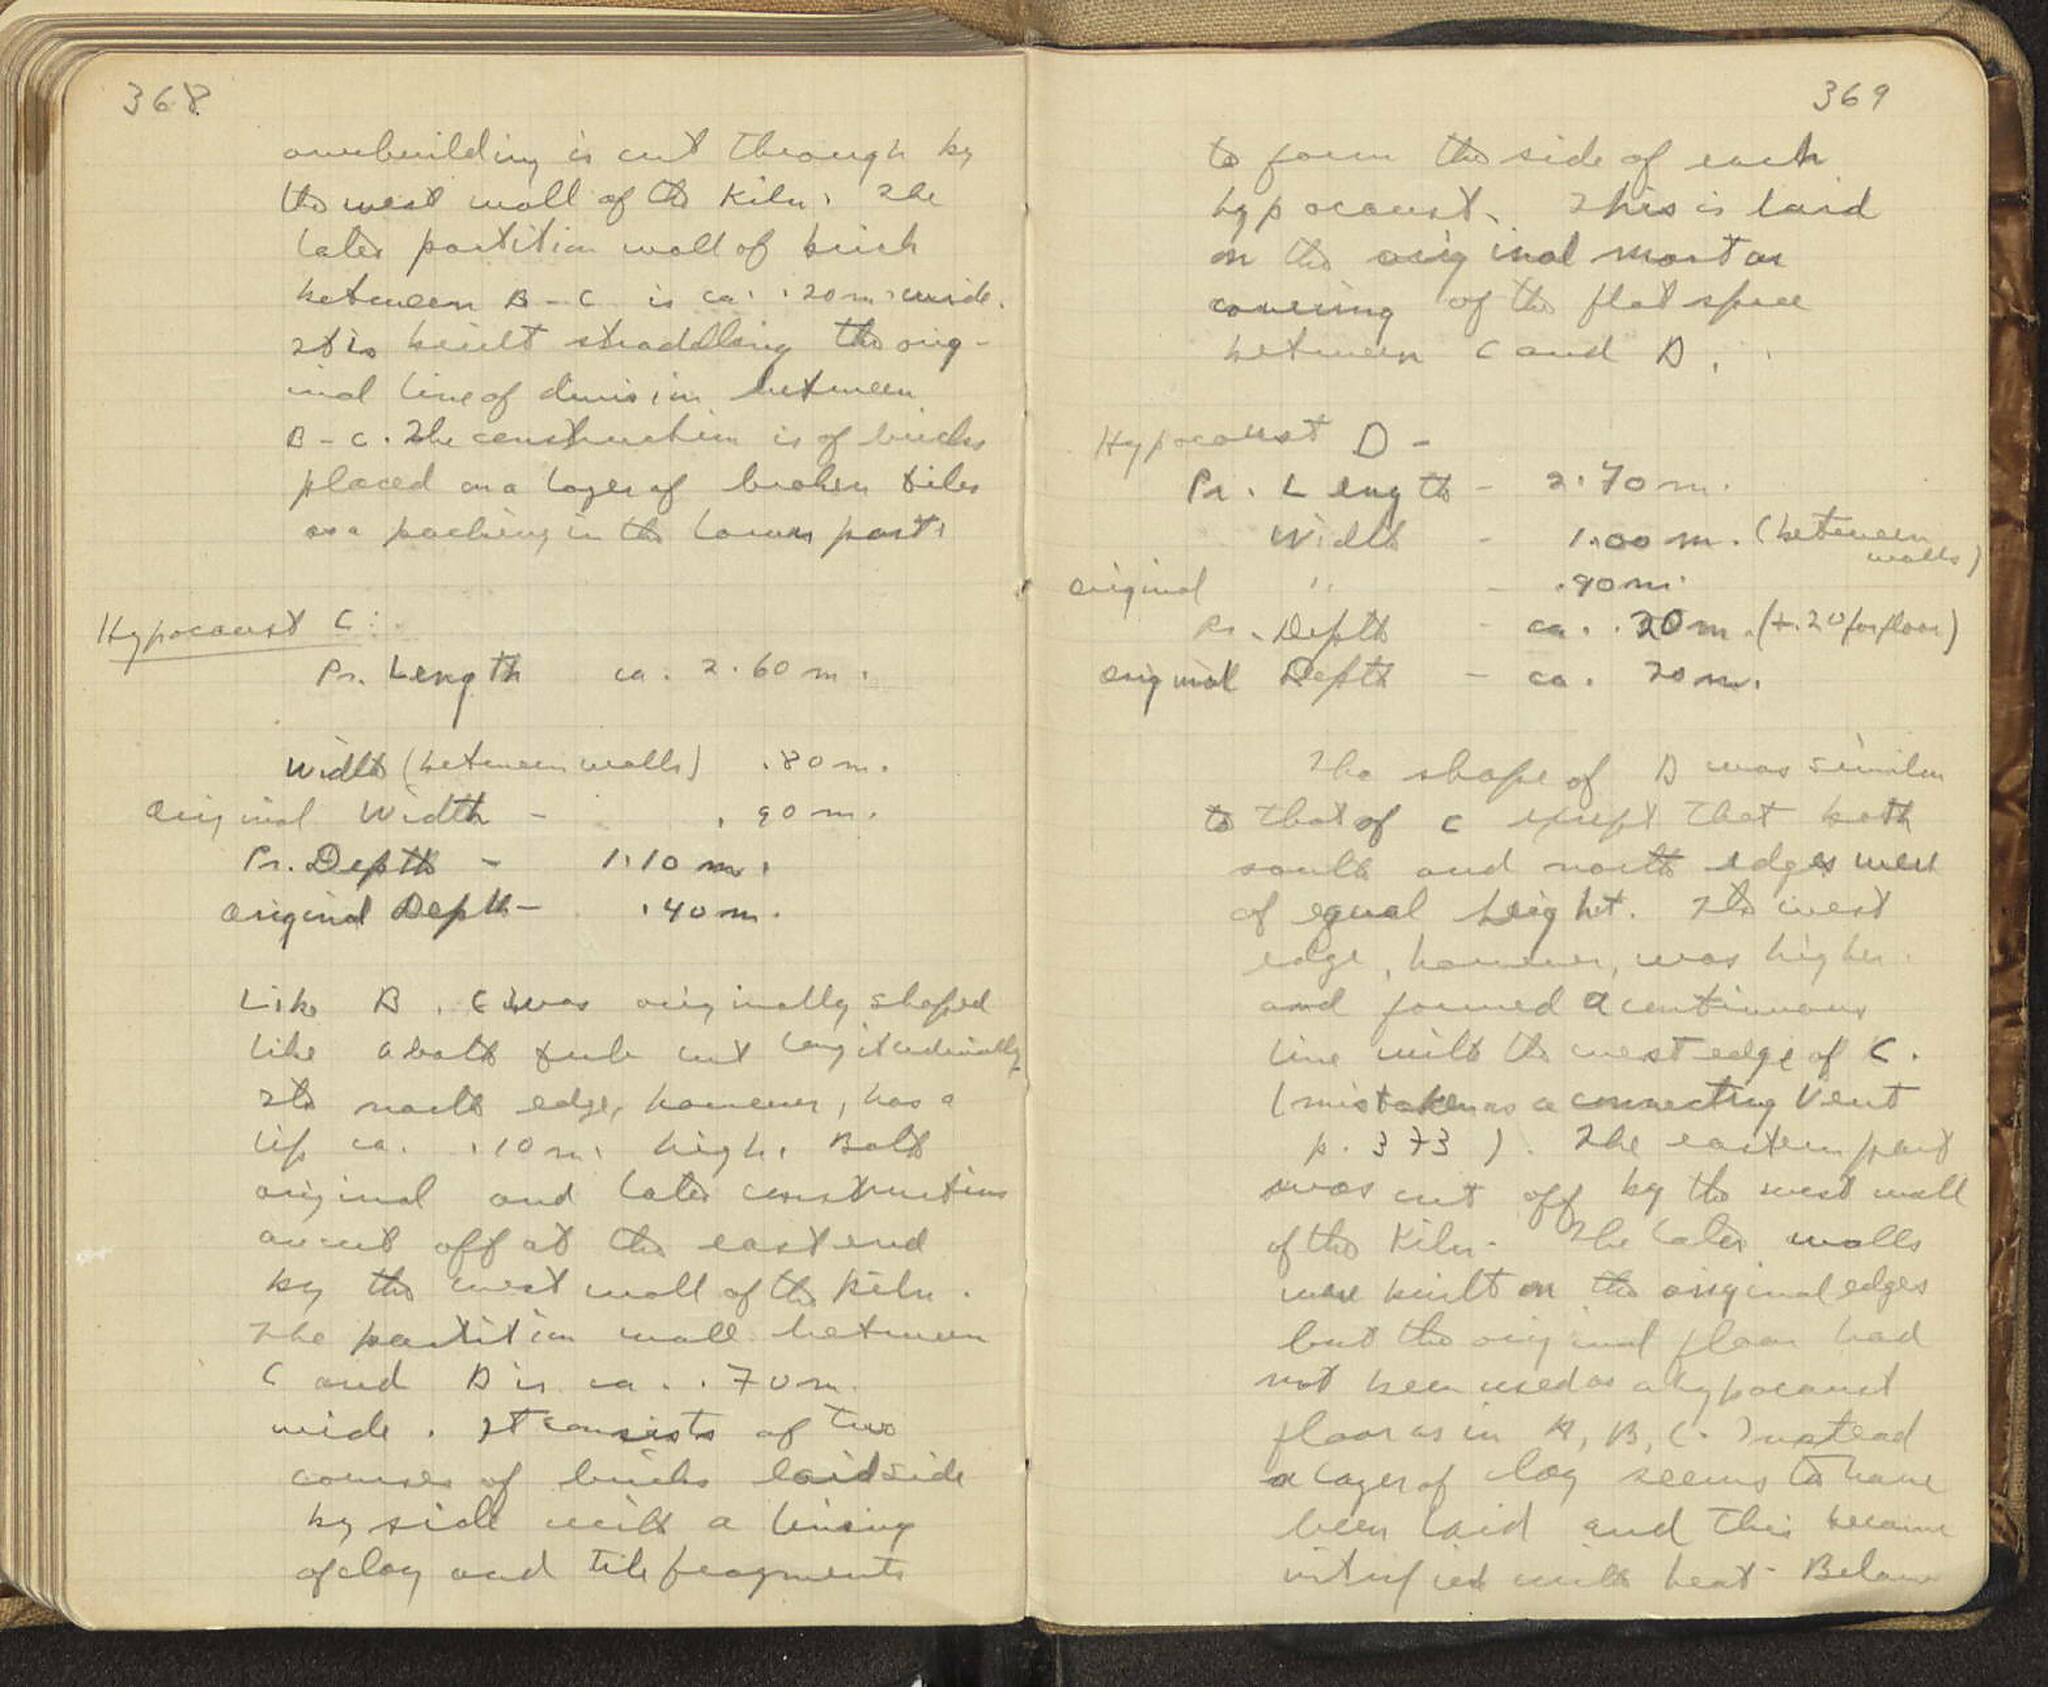 368
overbuilding is cut through by
the west wall of the Kiln. The
later partition wall of brick
between B - C is ca. .20 m. wide.
It is built straddling the orig-
inal line of division between
B - C. The construction is of bricks
placed on a layer of broken tiles
as a packing in the lower part.
Hypocaust C:
Pr. Length ca. 2.60 m.
Width (between walls) .80 m.
Original Width - .90 m.
Pr. Depth - 1.10 m.
Original Depth - .40 m.
Like B, C was originally shaped
like a bath tub cut longitudinally.
Its north edge, however, has a
lip ca. .10 m. high. Both
original and later constructions
are cut off at the east end
by the west wall of the kiln.
The partition wall between
C and D is ca. .70 m.
wide. It consists of two
courses of bricks laid side
by side with a lining
of clay and tile fragments
369
to form the side of each
hypocaust. This is laid
on the original mortar
covering of the flat space
between C and D.
Hypocaust D -
Pr. Length - 2.70 m.
Width - 1.00 m. (between
walls)
Original " - .90 m.
Pr. Depth - ca. .20 m. (+.20 for floor)
Original Depth - ca. 20 m.
The shape of D was similar
to that of C except that both
south and north edges were
of equal height. Its west
edge, however, was higher
and formed a continuous
line with the west edge of C.
(mistaken as a connecting vent
p. 373). The eastern part
was cut off by the west wall
of the Kiln. The later walls
were built on the original edges
but the original floor had
not been used as a hypocaust
floor as in A, B, C. Instead
a layer of clay seems to have
been laid and this became
vitrified with heat. Below